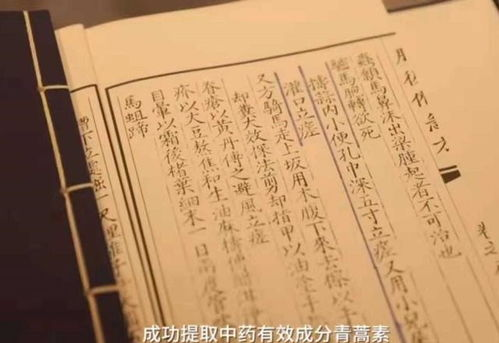 蟲顙馬鼻沫出梁腫起者不可治也
驢馬胞轉欲死
搗蒜內小便孔中深五寸立瘥又用小兒
灌口立瘥
又方騎馬走上坂用木腹下來去擦以手
却糞大效探法剪却指甲以油塗手
脊瘡以黃丹傅之避風立瘥
疥以大豆熬焦和生油麻擣傅醋
目暈以霜後楮葉細末一日兩度管
馬蛆蹄
成功提取中药有效成分青蒿素